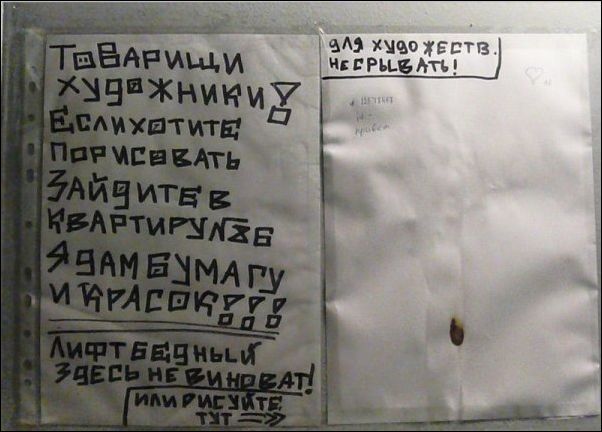 ТОВАРИЩИ
ХУДОЖНИКИ!
ЕСЛИ ХОТИТЕ
ПОРИСОВАТЬ
ЗАЙДИТЕ В
КВАРТИРУ №86
Я ДАМ БУМАГУ
И КРАСОК!!!
ЛИФТ БЕДНЫЙ
ЗДЕСЬ НЕ ВИНОВАТ!
ИЛИ РИСУЙТЕ
ТУТ
ДЛЯ ХУДОЖЕСТВ.
НЕ СРЫВАТЬ!